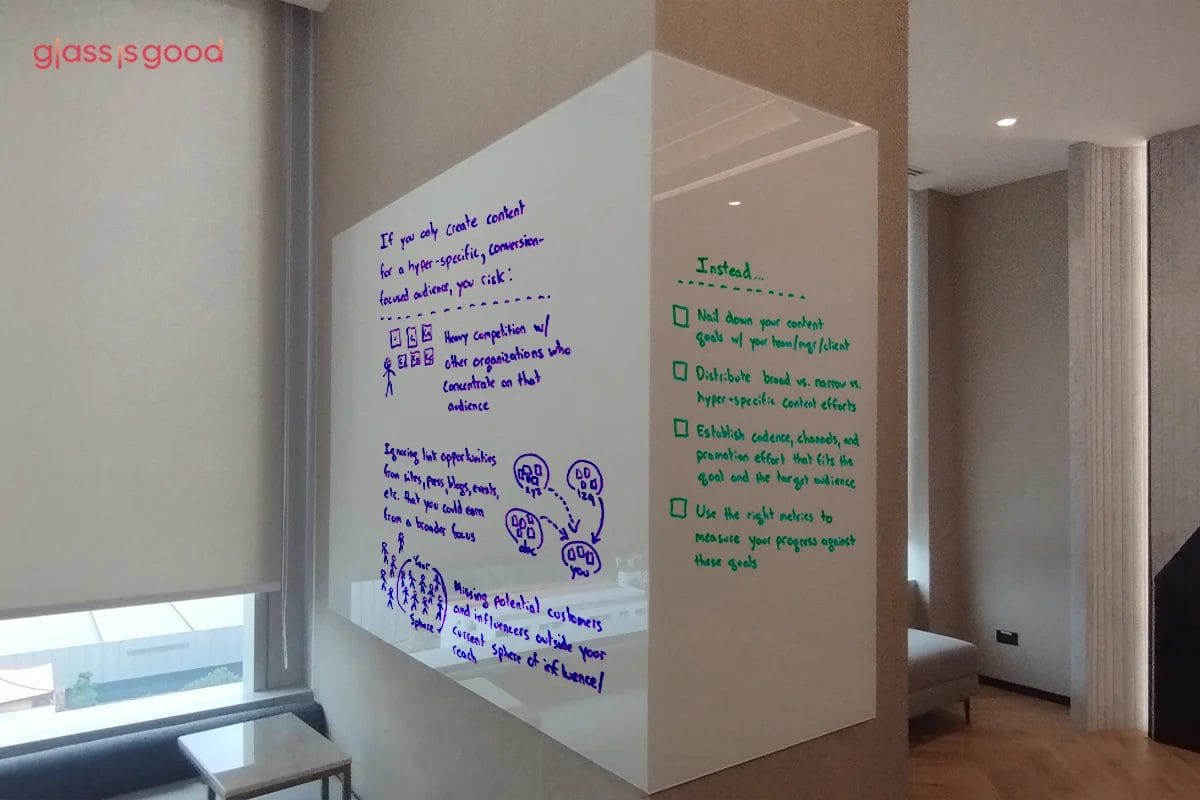 glass is good
If you only create content
for a hyper-specific, conversion-
focused audience, you risk:
Heavy competition w/
other organizations who
concentrate on that
audience
Ignoring link opportunities
from sites, press, blogs, events,
etc. that you could earn
from a broader focus
xyz
129
abc
you
Your
Sphere
Missing potential customers
and influencers outside your
current sphere of influence/
reach
Instead...
Nail down your content
goals w/ your team/mgr/client
Distribute broad vs. narrow vs.
hyper-specific content efforts
Establish cadence, channels, and
promotion effort that fits the
goal and the target audience
Use the right metrics to
measure your progress against
these goals